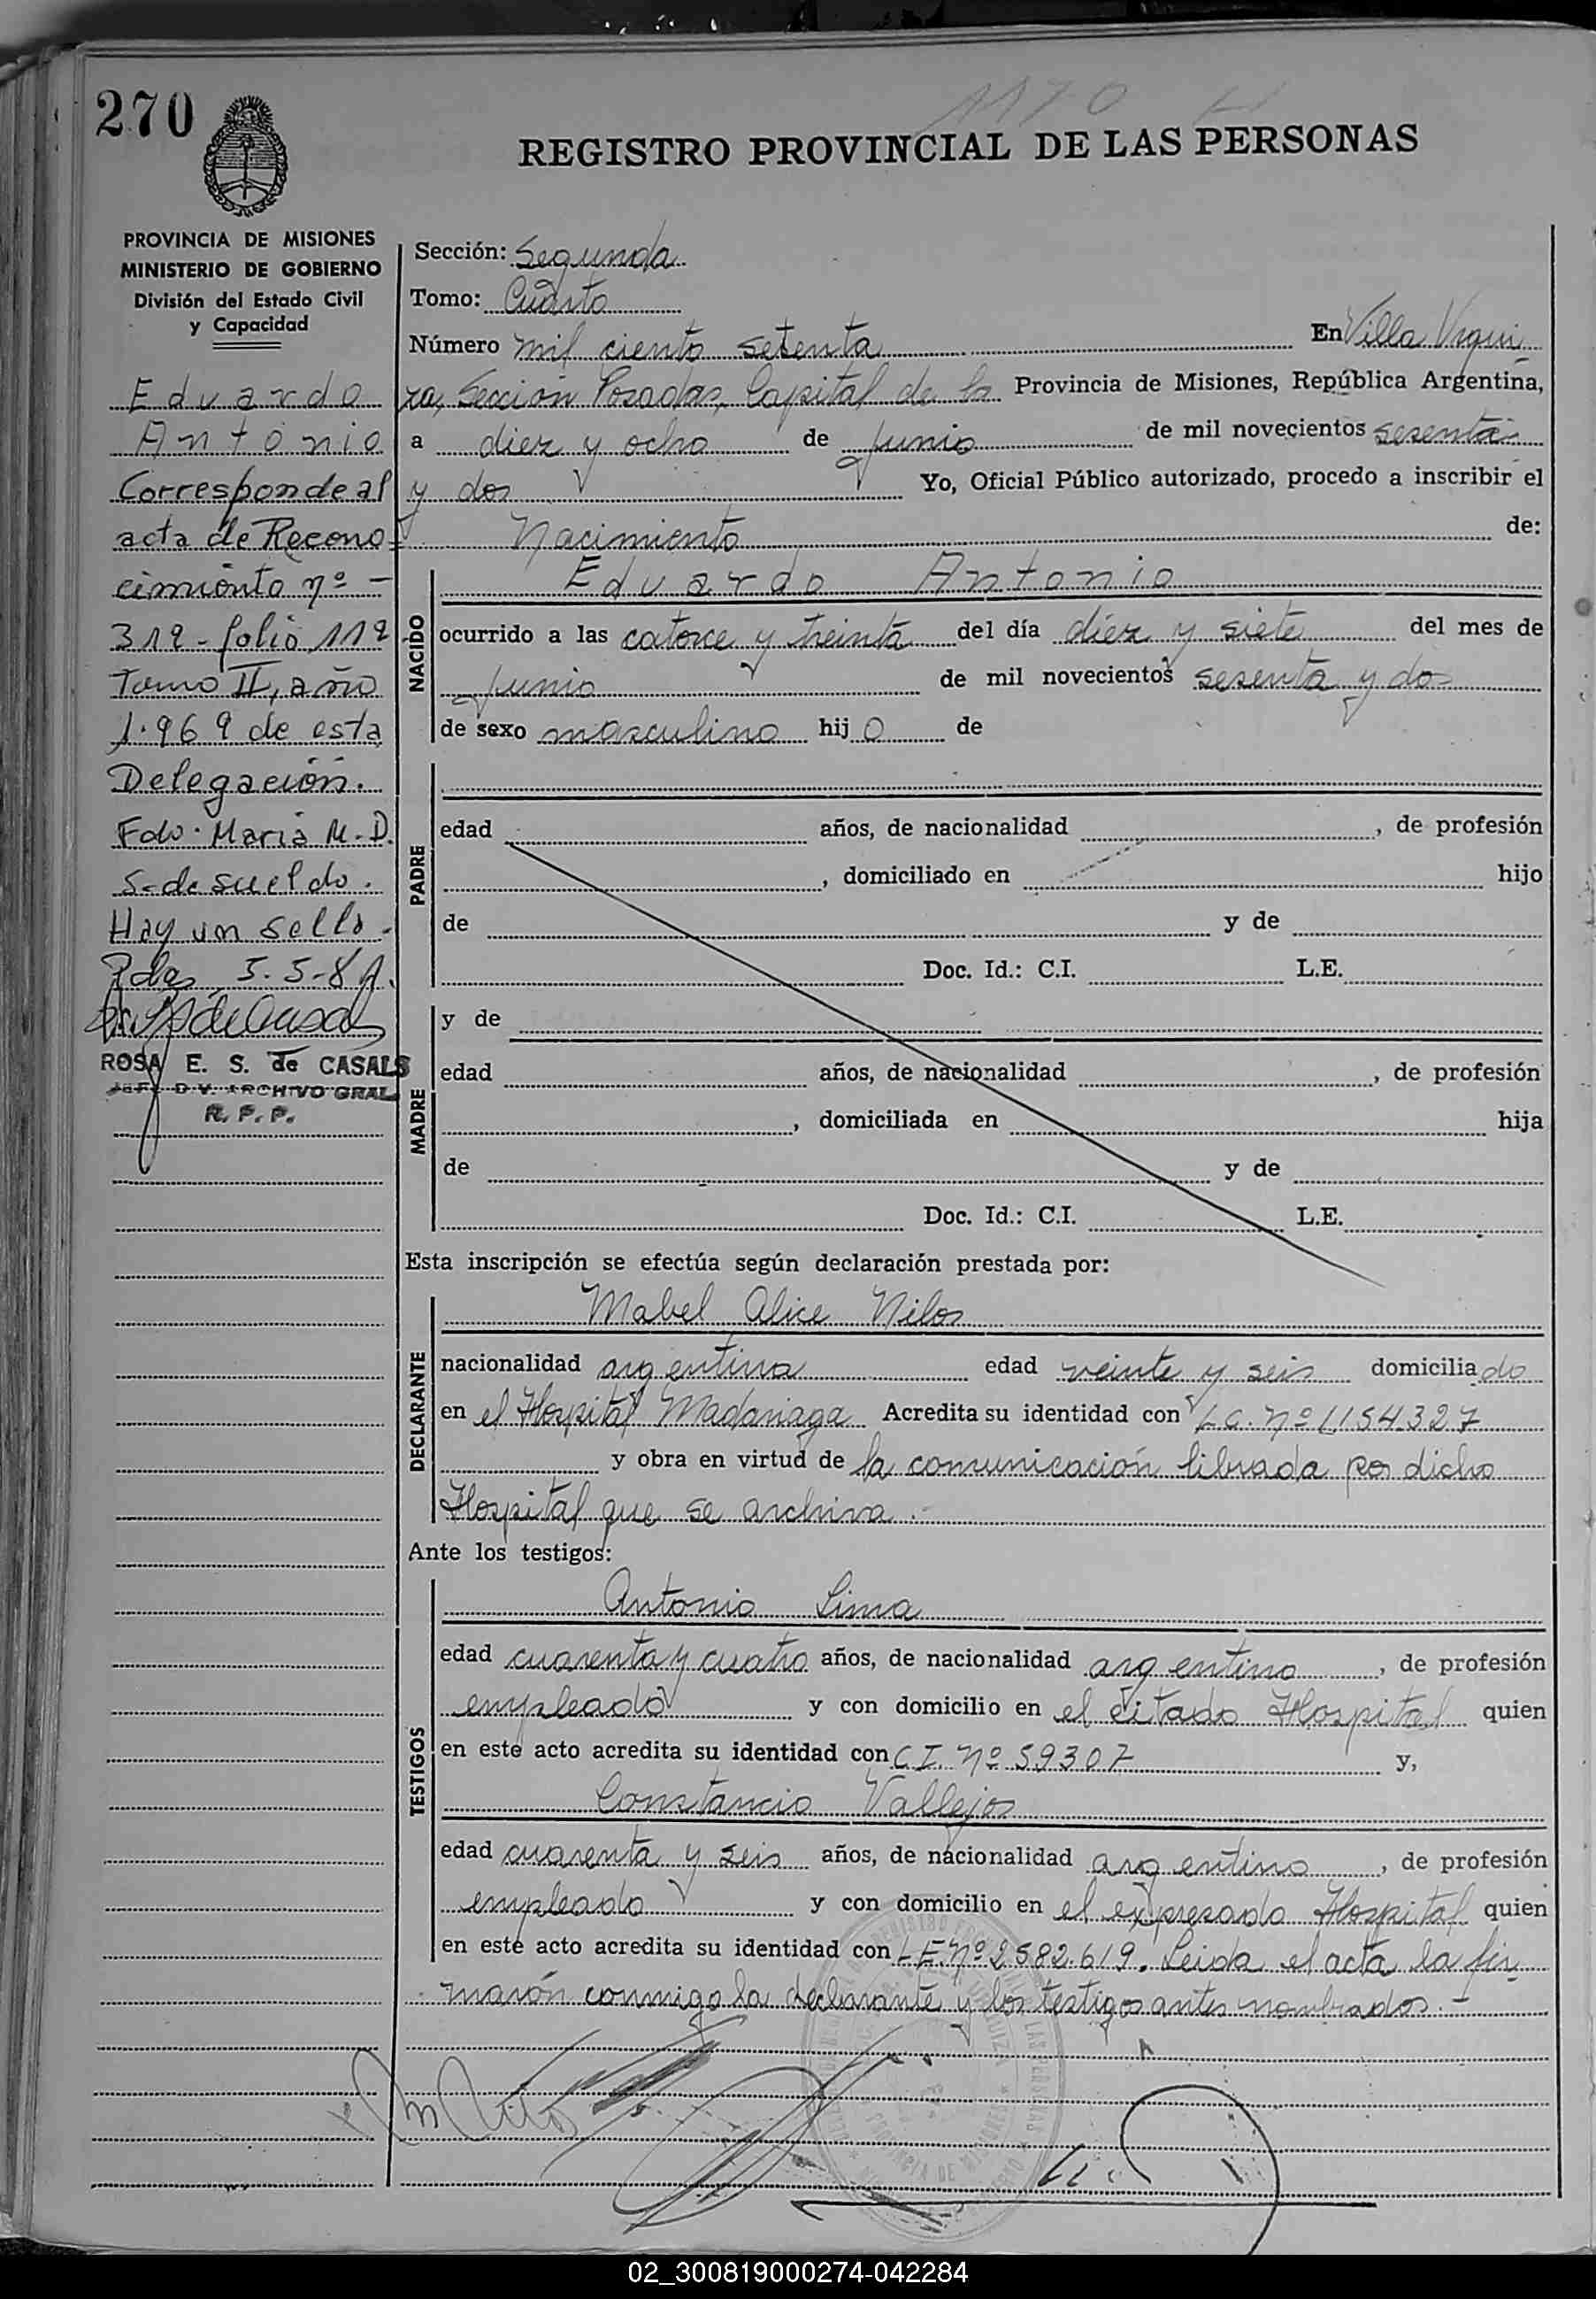 270
1170
REGISTRO PROVINCIAL DE LAS PERSONAS
PROVINCIA DE MISIONES
MINISTERIO DE GOBIERNO
División del Estado Civil
y Capacidad
Eduardo
Antonio
Corresponde al
acta de Recono=
cimiento nº -
312 - folio 112
Tomo II, año
1.969 de esta
Delegación.
Fdo. Maria M. D.
S. de sueldo.
Hay un sello.
Pdas, 5-5-81.
ROSA E. S. de CASALS
JEFE DIV. ARCHIVO GRAL
R. P. P.
Sección: Segunda
Tomo: Cuarto
Número mil ciento setenta En Villa Urqui
za, Sección Posadas, Capital de la Provincia de Misiones, República Argentina,
a diez y ocho de junio de mil novecientos sesenta
y dos Yo, Oficial Público autorizado, procedo a inscribir el
Nacimiento de:
NACIDO
Eduardo Antonio
ocurrido a las catorce y treinta del día diez y siete del mes de
junio de mil novecientos sesenta y dos
de sexo masculino hijo de
PADRE
edad años, de nacionalidad , de profesión
, domiciliado en hijo
de y de
Doc. Id.: C.I. L.E.
MADRE
y de
edad años, de nacionalidad , de profesión
, domiciliada en hija
de y de
Doc. Id.: C.I. L.E.
Esta inscripción se efectúa según declaración prestada por:
DECLARANTE
Mabel Alice Nilos
nacionalidad argentina edad veinte y seis domiciliado
en el Hospital Madariaga Acredita su identidad con L.C. nº 1154327
y obra en virtud de la comunicación librada por dicho
Hospital que se archiva.-
Ante los testigos:
TESTIGOS
Antonio Lima
edad cuarenta y cuatro años, de nacionalidad argentino , de profesión
empleado y con domicilio en el citado Hospital quien
en este acto acredita su identidad con C I. nº 59307 y,
Constancio Vallejos
edad cuarenta y seis años, de nacionalidad argentino , de profesión
empleado y con domicilio en el expresado Hospital quien
en este acto acredita su identidad con L E. nº 2582.619. Leida el acta la fir
maron conmigo la declarante y los testigos antes nombrados.-
02_300819000274-042284